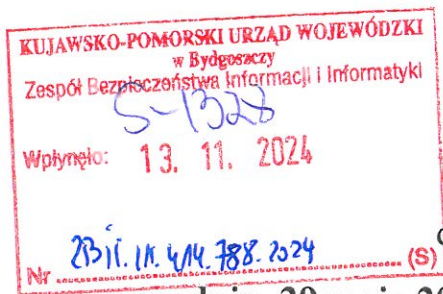 KUJAWSKO-POMORSKI URZĄD WOJEWÓDZKI
w Bydgoszczy
Zespół Bezpieczeństwa Informacji i Informatyki
S-1328
Wpłynęło: 13. 11. 2024
Nr 2024 (S)